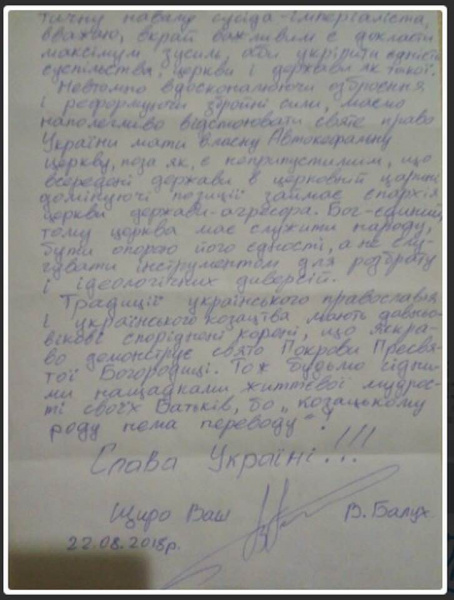 тичну навалу сусіда-імперіаліста,
вважаю, вкрай важливим є докласти
максимум зусиль, аби укріпити єдність
суспільства, церкви і держави як такої.
Невтомно вдосконалюючи озброєння
і реформуючи збройні сили, маємо
наполегливо відстоювати святе право
України мати власну Автокефальну
церкву, поза як, є неприпустимим, що
всередені держави в церковній царині
домінуючі позиції займає єпархія
церкви держави-агресора. Бог-єдиний,
тому церква має служити народу,
бути опорою його єдності, а не слу-
гувати інструментом для розбрату
і ідеологічних диверсій.
Традиції українського православія
і українського козацтва мають давньо-
вікові споріднені корені, що яскра-
во демонструє свято Покрови Пресвя-
тої Богородиці. Тож будьмо гідни-
ми нащадками життєвої мудрос-
ті своїх Батьків, бо „козацькому
роду нема переводу"!
Слава Україні!!!
Щиро Ваш В. Балух
22.08.2018р.